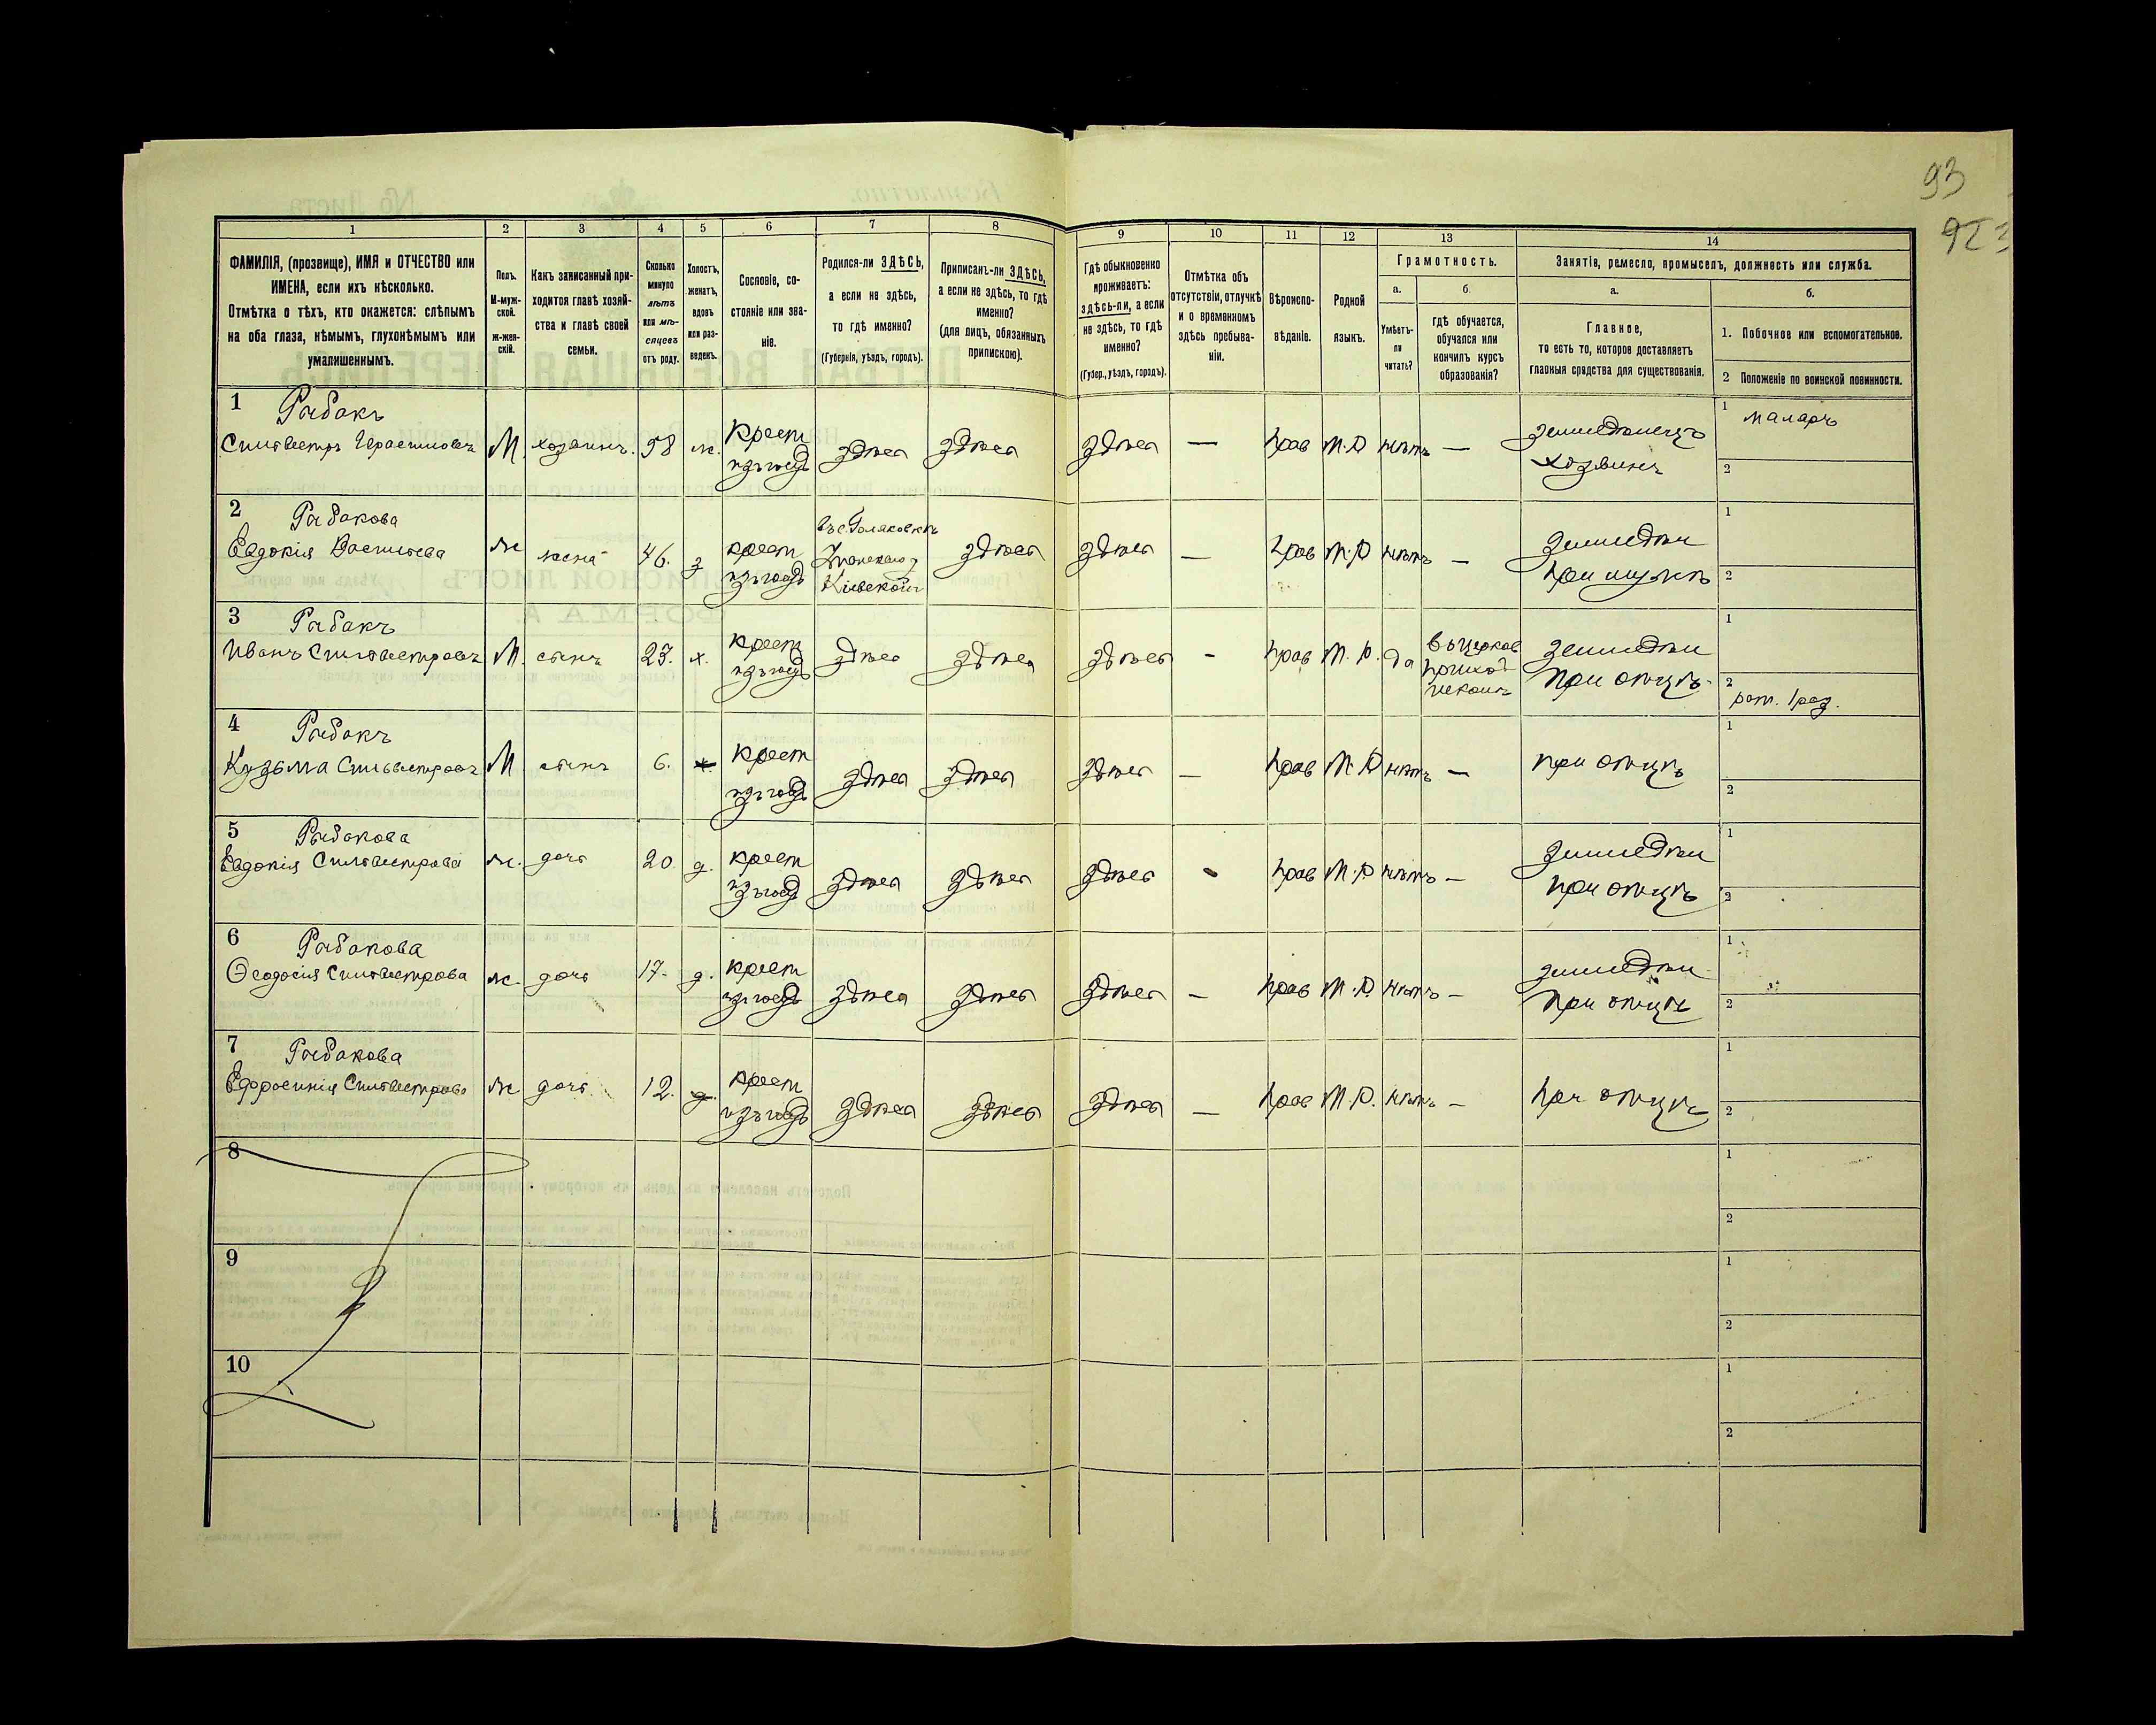 93
92
1
2
3
4
5
6
7
8
9
10
11
12
13
14
ФАМИЛІЯ, (прозвище), ИМЯ и ОТЧЕСТВО или
ИМЕНА, если ихъ нѣсколько.
Отмѣтка о тѣхъ, кто окажется: слѣпымъ
на оба глаза, нѣмымъ, глухонѣмымъ или
умалишеннымъ.
Полъ.
М-муж-
ской.
ж-жен-
скій.
Какъ записанный при-
ходится главѣ хозяй-
ства и главѣ своей
семьи.
Сколько
минуло
лѣтъ
или мѣ-
сяцевъ
отъ роду.
Холостъ,
женатъ,
вдовъ
или раз-
веденъ.
Сословіе, со-
стояніе или зва-
ніе.
Родился-ли ЗДѢСЬ,
а если не здѣсь,
то гдѣ именно?
(Губернія, уѣздъ, городъ).
Приписанъ-ли ЗДѢСЬ,
а если не здѣсь, то гдѣ
именно?
(для лицъ, обязанныхъ
припискою).
Гдѣ обыкновенно
проживаетъ:
здѣсь-ли, а если
не здѣсь, то гдѣ
именно?
(Губер., уѣздъ, городъ).
Отмѣтка объ
отсутствіи, отлучкѣ
и о временномъ
здѣсь пребыва-
ніи.
Вѣроиспо-
вѣданіе.
Родной
языкъ.
Грамотность.
а.
Умѣетъ-
ли
читать?
б.
гдѣ обучается,
обучался или
кончилъ курсъ
образованія?
Занятія, ремесло, промыселъ, должность или служба.
а.
Главное,
то есть то, которое доставляетъ
главныя средства для существованія.
б.
1. Побочное или вспомогательное.
2 Положеніе по воинской повинности.
1 Рыбакъ
Сильвестръ М хозяинъ. 58 ж. крест
здѣсь здѣсь здѣсь — прав М.Р нѣтъ — земледѣлецъ
хозяинъ
1 маляръ
2
2 Рыбакова
Евдокія Васильева ж жена 46. з крест
Кіевской
здѣсь здѣсь — прав М.Р нѣтъ — земледѣл
при мужѣ
1
2
3 Рыбакъ
Иванъ Сильвестровъ М. сынъ 23. х. крест
здѣсь здѣсь здѣсь - прав М.Р. да
приход
земледѣл
при отцѣ
1
2 рат. 1 раз.
4 Рыбакъ
Кузьма Сильвестровъ М сынъ 6. х. крест
здѣсь здѣсь здѣсь — прав М.Р нѣтъ — при отцѣ
1
2
5 Рыбакова
Евдокія Сильвестрова ж. дочь 20. д. крест
здѣсь здѣсь здѣсь - прав М.Р нѣтъ — земледѣл
при отцѣ
1
2
6 Рыбакова
Ѳеодосія Сильвестрова ж. дочь 17. д. крест
здѣсь здѣсь здѣсь — прав М.Р. нѣтъ — земледѣл
при отцѣ
1
2
7 Рыбакова
Ефросинія Сильвестрова ж дочь 12. д. крест
здѣсь здѣсь здѣсь — прав М.Р. нѣтъ — при отцѣ
1
2
8
1
2
9
1
2
10
1
2